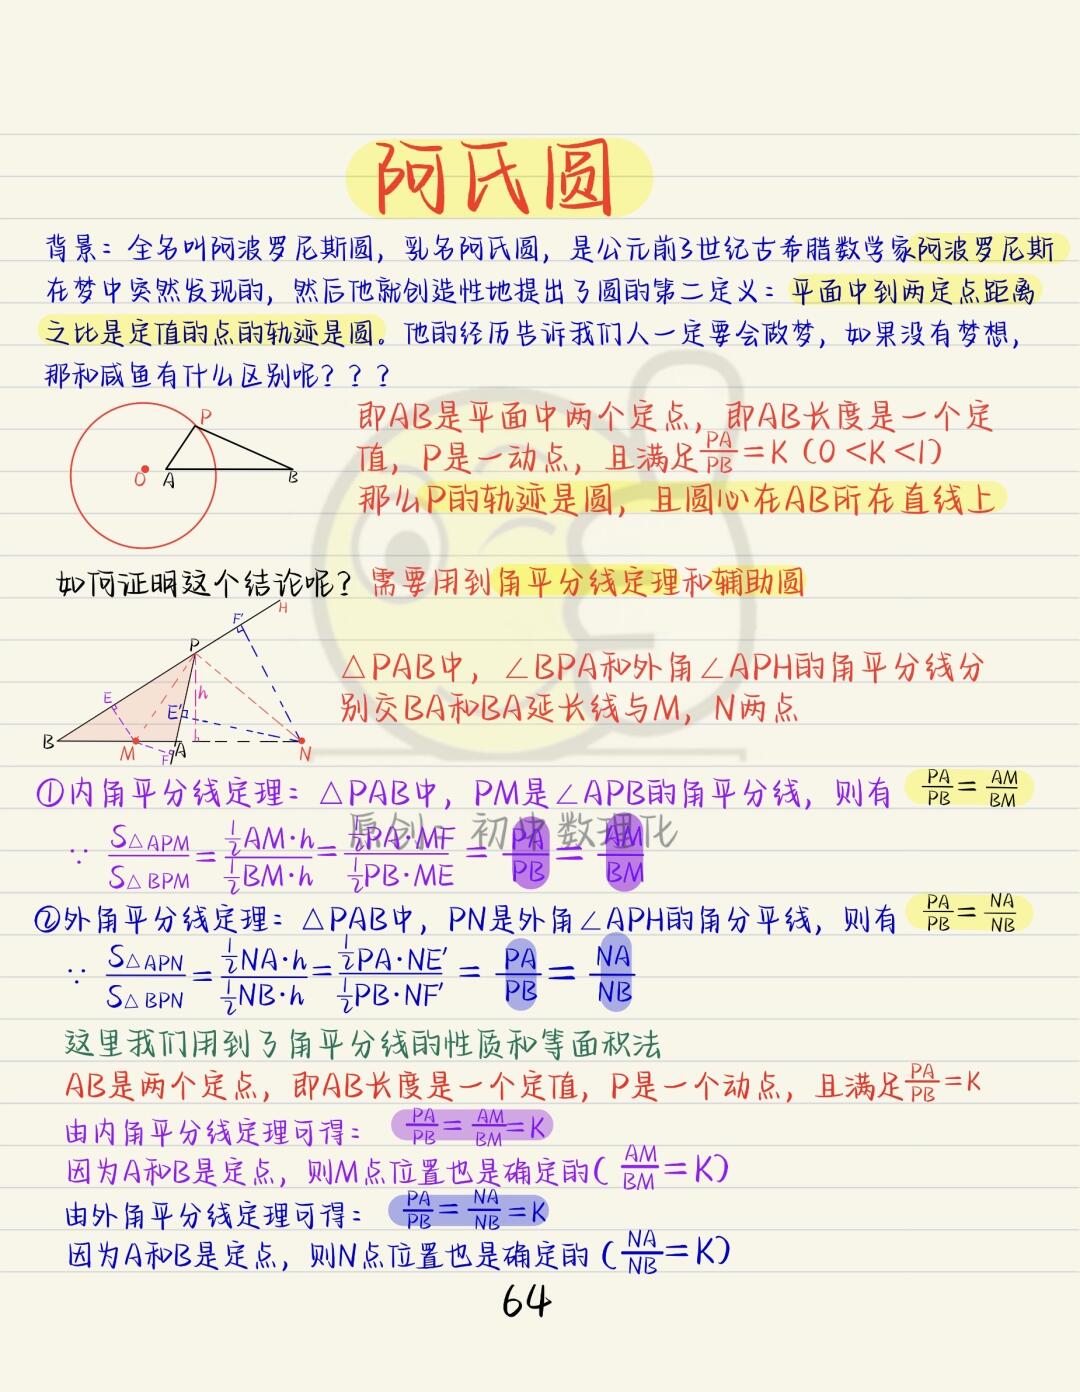 阿氏圆
背景：全名叫阿波罗尼斯圆，乳名阿氏圆，是公元前3世纪古希腊数学家阿波罗尼斯
在梦中突然发现的，然后他就创造性地提出了圆的第二定义：平面中到两定点距离
之比是定值的点的轨迹是圆。他的经历告诉我们人一定要会做梦，如果没有梦想，
那和咸鱼有什么区别呢？？？
P
O A B
即AB是平面中两个定点，即AB长度是一个定
值，P是一动点，且满足PA/PB=K（0<K<1）
那么P的轨迹是圆，且圆心在AB所在直线上
如何证明这个结论呢？需要用到角平分线定理和辅助圆
F' H
P
E h E'
B M F A N
△PAB中，∠BPA和外角∠APH的角平分线分
别交BA和BA延长线与M，N两点
①内角平分线定理：△PAB中，PM是∠APB的角平分线，则有 PA/PB=AM/BM
原创：初中数理化
∵ S△APM/S△BPM=(1/2AM·h)/(1/2BM·h)=(1/2PA·MF)/(1/2PB·ME)=PA/PB=AM/BM
②外角平分线定理：△PAB中，PN是外角∠APH的角分平线，则有 PA/PB=NA/NB
∵ S△APN/S△BPN=(1/2NA·h)/(1/2NB·h)=(1/2PA·NE')/(1/2PB·NF')=PA/PB=NA/NB
这里我们用到了角平分线的性质和等面积法
AB是两个定点，即AB长度是一个定值，P是一个动点，且满足PA/PB=K
由内角平分线定理可得： PA/PB=AM/BM=K
因为A和B是定点，则M点位置也是确定的（AM/BM=K）
由外角平分线定理可得： PA/PB=NA/NB=K
因为A和B是定点，则N点位置也是确定的（NA/NB=K）
64